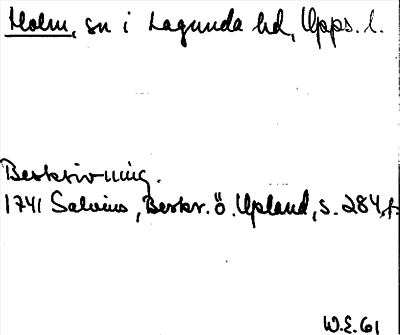 Holm, sn i Lagunda hd, Upps. l.
Beskrivning.
1741 Salvius, Beskr. ö. Upland, s. 284, f.
W.E. 61